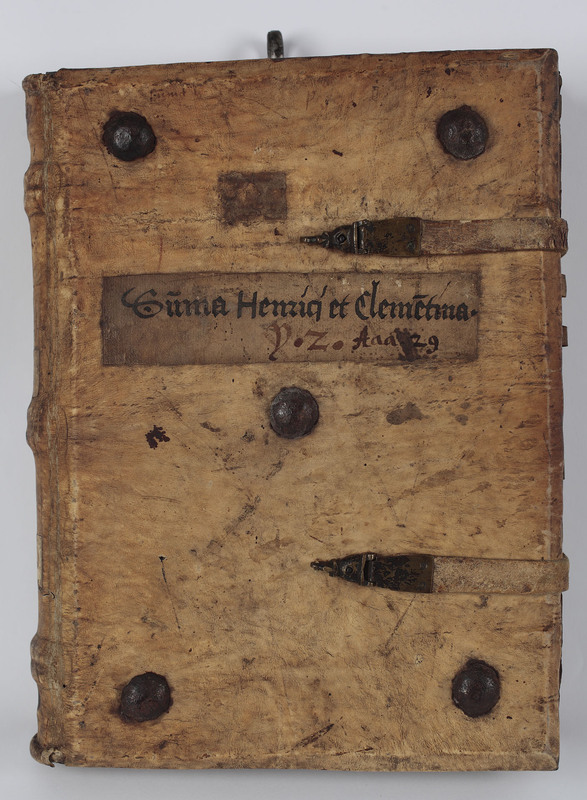 Sūma Henrici et Clemētina.
y. z. Aaa 29